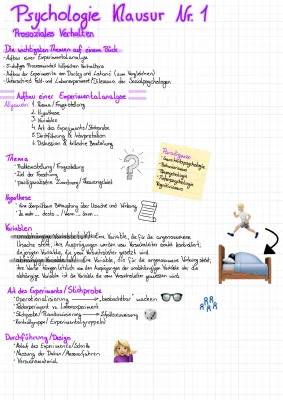 Psychologie Klausur Nr. 1
Prosoziales Verhalten
Die wichtigsten Themen auf einem Blick
- Aufbau einer Experimentalanalyse
- 5-stufiges Prozessmodell hilfreichen Verhaltens
- Aufbau der Experimente von Darley und Latané (zum Vergleichen)
- Unterschied Feld- und Laborexperiment / der Sozialpsychologen
Aufbau einer Experimentalanalyse
Allgemein: 1. Thema / Fragestellung
2. Hypothese
3. Variablen
4. Art des Experiments / Stichprobe
5. Durchführung & Interpretation
6. Diskussion & kritische Beurteilung
Thema
- Problemstellung / Fragestellung
- Ziel der Forschung
- paradigmatische Zuordnung / Themengebiet
Paradigmen
Hypothese
- eine überprüfbare Behauptung über Ursache und Wirkung
- Je mehr ... desto ... / Wenn ... dann ...
Variablen
- unabhängige Variable (uV): Eine Variable, die für die angenommene
Ursache steht, ihre Ausprägungen werden vom Versuchsleiter kontrolliert;
diejenigen Variable, die vom Versuchsleiter gesetzt wird
- abhängige Variable (aV): Eine Variable, die für die angenommene Wirkung steht,
ihre Werte hängen von den Ausprägungen der unabhängigen Variable ab; die
abhängige Variable ist die Variable die vom Versuchsleiter gemessen wird
Art des Experiments / Stichprobe
- Operationalisierung → beobachtbar machen
- Feldexperiment vs. Laborexperiment
- Stichprobe / Randomisierung → Zufallsauswahl
- Kontrollgruppe / Experimentalgruppe(n)
Durchführung / Design
- Ablauf des Experiments / Schritte
- Messung der Daten / Messverfahren
- Versuchsmaterial